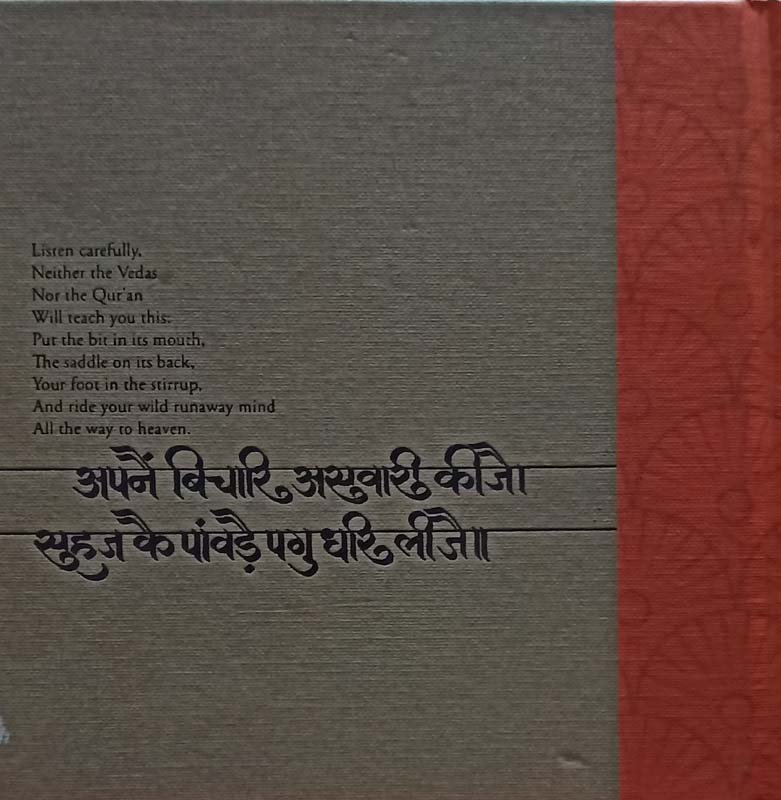 Listen carefully,
Neither the Vedas
Nor the Qur'an
Will teach you this:
Put the bit in its mouth,
The saddle on its back,
Your foot in the stirrup,
And ride your wild runaway mind
All the way to heaven.
अपनैं बिचारि असुवारी कीजै।
सुहज कै पांवड़ै पगु धरि लीजै॥